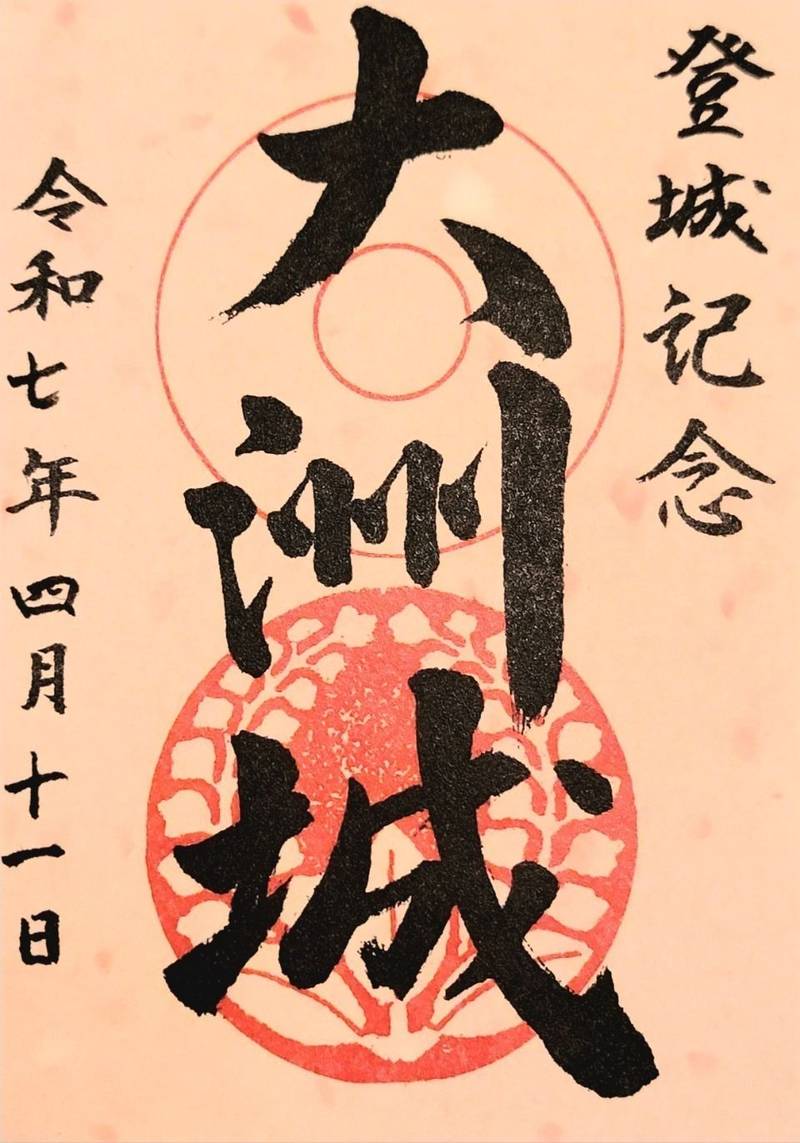 登城記念
大洲城
令和七年四月十一日